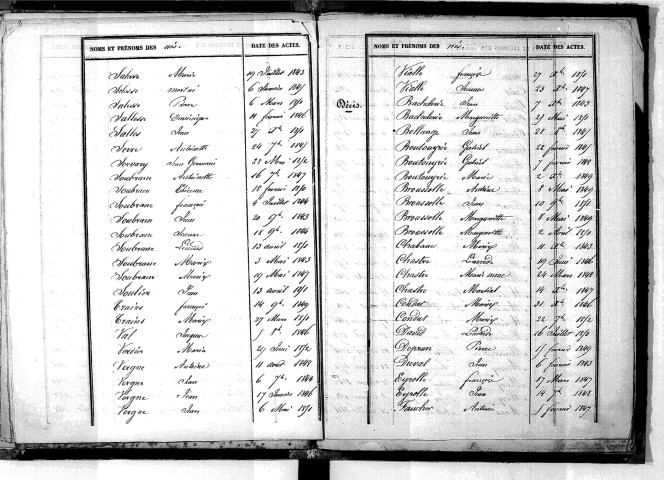 NOMS ET PRÉNOMS DES nés. DATE DES ACTES.
Salesse Marie 19 Juillet 1843
Salesse mort né 6 Janvier 1845
Salesse Pierre 6 Mars
Sallesse Dominique 11 février 1846
Salles Jean 27 Xbre
Serre Antoinette 24 7bre
Servary Jean Germain 22 Mai 1852
Soubran Antoinette 16 7bre 1847
Soubran Etienne 18 février 1850
Soubrane françois 4 Juillet 1844
Soubrane Jean 20 9bre 1843
Soubrane Jeanne 18 9bre 1844
Soubrane Léonard 13 avril 1851
Soubrane Marie 3 Mai 1843
Soubrane Marie 19 Mai 1847
Soulier Jean 13 avril 1851
Trains françois 14 9bre 1849
Trains Marie 27 Mars 1851
Val Jacques 1 8bre 1846
Marie 29 Juin 1852
Vergne Antoine 11 août 1848
Vergne Jean 6 7bre 1844
Vergne Jean 17 Janvier 1846
Vergne Jean 6 Mai 1851
NOMS ET PRÉNOMS DES nés. DATE DES ACTES.
Vialle françois 27 Xbre 1851
Vialle Jeanne 23 Xbre 1847
Décès.
Bachelerie Jean 7 Xbre 1843
Bachelerie Marguerite 29 Mai 1851
Bellange Jean 28 Xbre 1845
Boutouyrie Gabriel 22 février 1845
Boutouyrie Gabriel 7 février 1848
Boutouyrie Marie 2 Xbre 1849
Brousselle Antoine 8 Mai 1849
Brousselle Jean 10 9bre 1851
Brousselle Marguerite 8 Mai 1849
Brousselle Marguerite 2 Avril 1851
Chabane Marie 11 Xbre 1843
Chastre Léonarde 19 Juin 1846
Chastre Marie anne 24 Mars 1848
Chastre Martial 14 Xbre 1847
Condat Marie 31 Xbre 1846
Condat Marie 22 7bre 1852
David Léonarde 16 Juillet 1852
Pierre 17 février 1849
Duval Jean 6 février 1843
Eyrolle françois 17 Mars 1847
Eyrolle Jean 14 7bre 1848
Faucher Antoine 1 février 1847